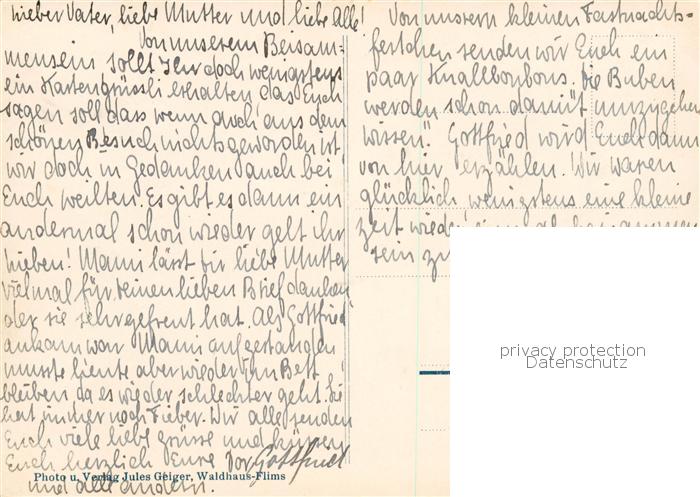 Lieber Vater, liebe Mutter und liebe Alle!
Von unserem Beisam=
mensein sollt Ihr doch wenigstens
ein Kartengrüssli erhalten, das Euch
sagen soll dass wenn auch aus dem
schönen Besuch nichts geworden ist
wir doch in Gedanken auch bei
Euch weilten. Es gibt es dann ein
andermal schon wieder gelt ihr
Lieben! Mami lässt dir liebe Mutter
vielmal für deinen lieben Brief danken
der sie sehr gefreut hat. Als Gottfried
ankam war Mami aufgestanden
musste heute aber wieder im Bett
bleiben da es wieder schlechter geht. Sie
hat immer noch Fieber. Wir alle senden
Euch viele liebe Grüsse und küssen
Euch herzlich Eure Gottfried
und alle andern.
Photo u. Verlag Jules Geiger, Waldhaus-Flims
Von unsern kleinen Fastnachts=
festchen senden wir Euch ein
paar Knallbonbons. Die Buben
werden schon damit umzugehen
wissen. Gottfried wird Euch dann
von hier erzählen. Wir waren
glücklich, wenigstens eine kleine
Zeit wieder einmal beisammen
sein zu
privacy protection
Datenschutz